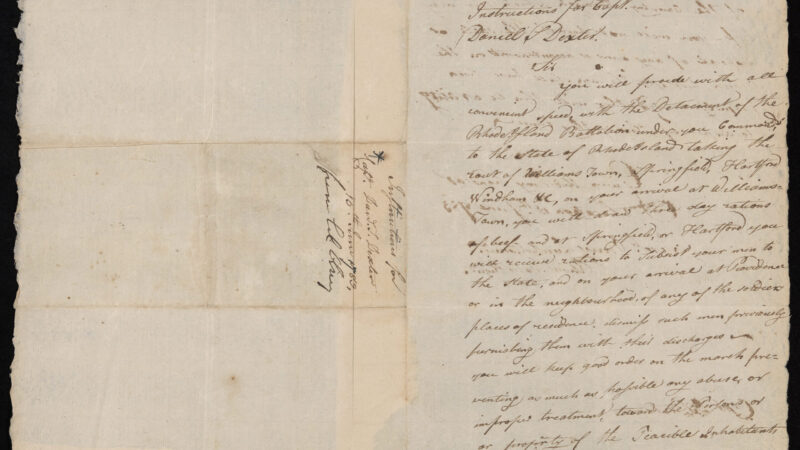 Instructions for Capt.
Daniell S Dexter.
Sir
you will procede with all
convenient speed, with the Detachment of the
Rhode Island Battalion under you Command,
to the State of Rhode Island, taking the
rout of Williams Town, Springfield, Hartford
Windham &c, on your arrival at Williams-
Town, you will draw three day rations
of beef and at Springfield, or Hartford you
will receive rations to Subsist your men to
the State, and on your arrival at Providence
or in the neighbourhood, of any of the soldiers
places of residence. dismiss such men previously
furnishing them with their discharges
you will keep good order on the march pre-
venting as much as possible any abuse, or
improper treatment, toward the Persons or
or property of the Peacible Inhabitants
Instructions for
Capt. Daniel S. Dexter
13th June 1783,
from